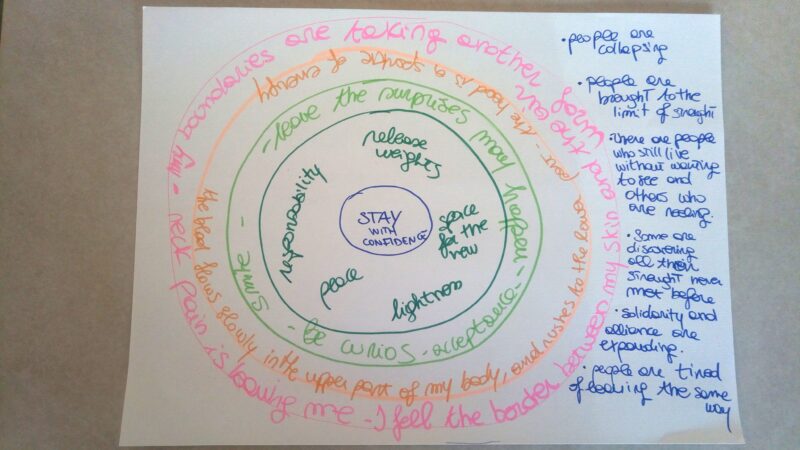 STAY
WITH
CONFIDENCE
release
weights
space
for the
new
lightness
peace
responsability
- leave the surprises may happen - acceptance - be curios - smile -
the blood flows slowly in the upper part of my body, and rushes to the lower part - the head is a sphere of energy
my boundaries are taking another form and the air - neck pain is leaving me - I fell the border between my skin
• people are
collapsing
• people are
brought to the
limit of straight
• there are people
who still live
without wanting
to see and
others who
are reeling.
• Some are
discovering
all their
straight never
met before
• solidarity and
alliance are
expanding.
• people are tired
of looking the same
way